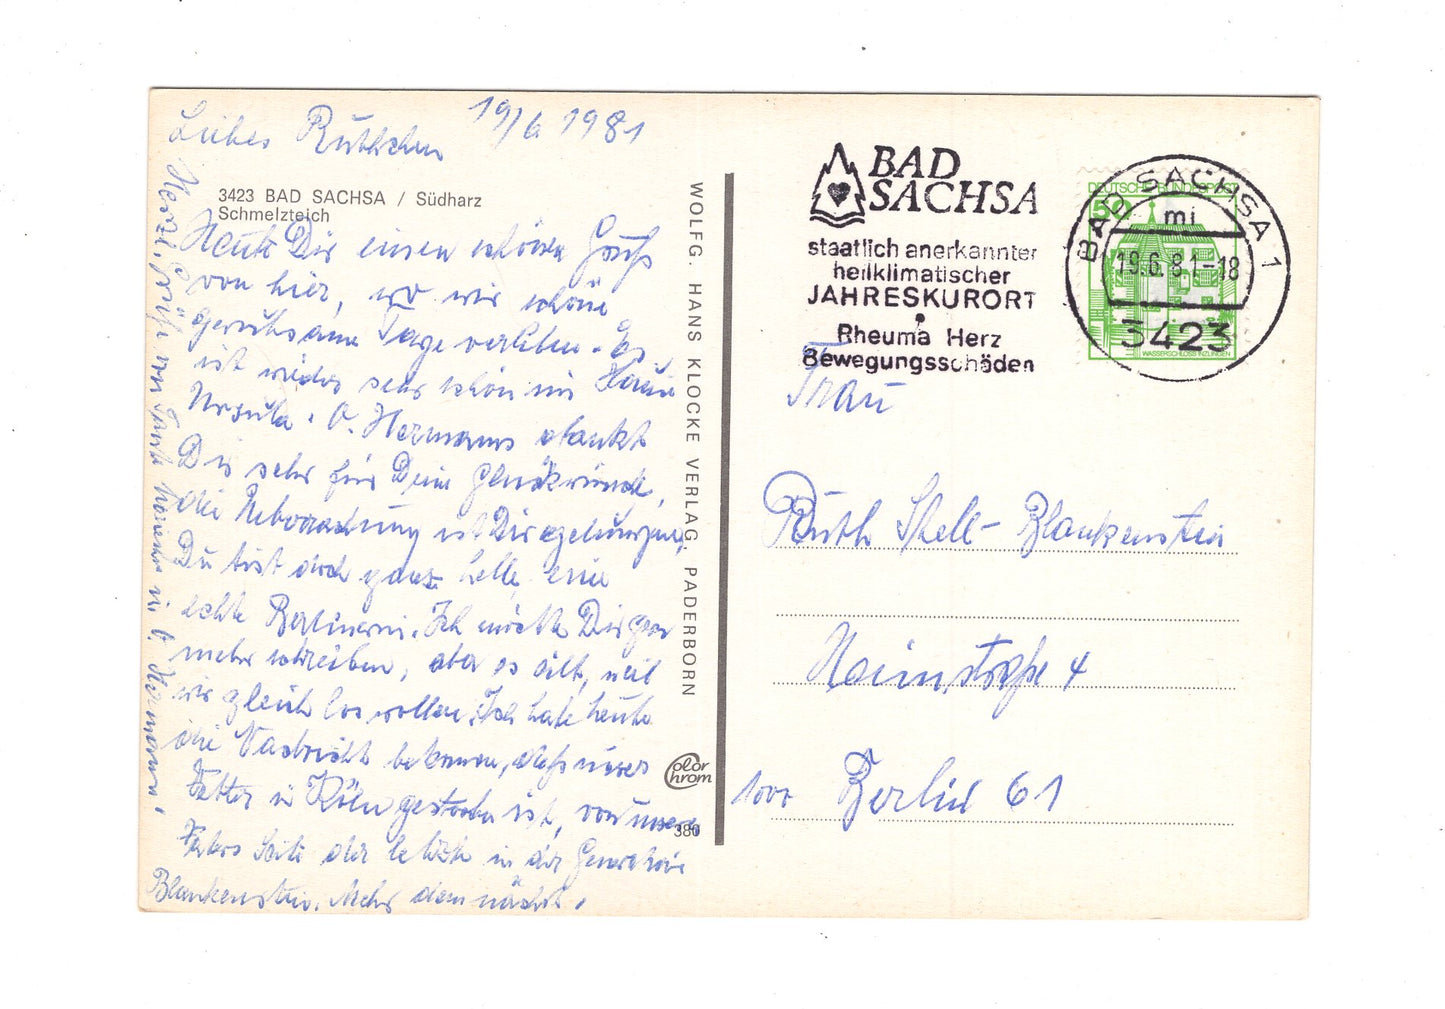 19/6 1981
Liebes Ruthchen
3423 BAD SACHSA / Südharz
Schmelzteich
Heute Dir einen schönen Gruß
von hier, wo wir schöne
geruhsame Tage verleben. Es
ist wieder sehr schön im Hause
Ursula. O. Hermann dankt
Dir sehr für Deine Glückwünsche,
die Überraschung ist Dir gelungen,
Du bist doch ganz helle, eine
echte Berlinerin. Ich möchte Dir gern
mehr schreiben, aber es eilt, weil
wir gleich los wollen. Ich habe heute
die Nachricht bekommen, daß unser
Vetter in Köln gestorben ist, von unseres
Vaters Seite der letzte in der Generation
Blankenstein. Mehr demnächst.
Herzl. Grüße von Tante u. O. Hermann.
WOLFG. HANS KLOCKE VERLAG, PADERBORN
Color
Chrom
380
BAD
SACHSA
staatlich anerkannter
heilklimatischer
JAHRESKURORT
Rheuma Herz
Bewegungsschäden
DEUTSCHE BUNDESPOST
50
WASSERSCHLOSS INZLINGEN
BAD SACHSA 1
mi
19.6.81-18
3423
Frau
Ruth Stell-Blankenstein
Heimstraße 4
1000 Berlin 61